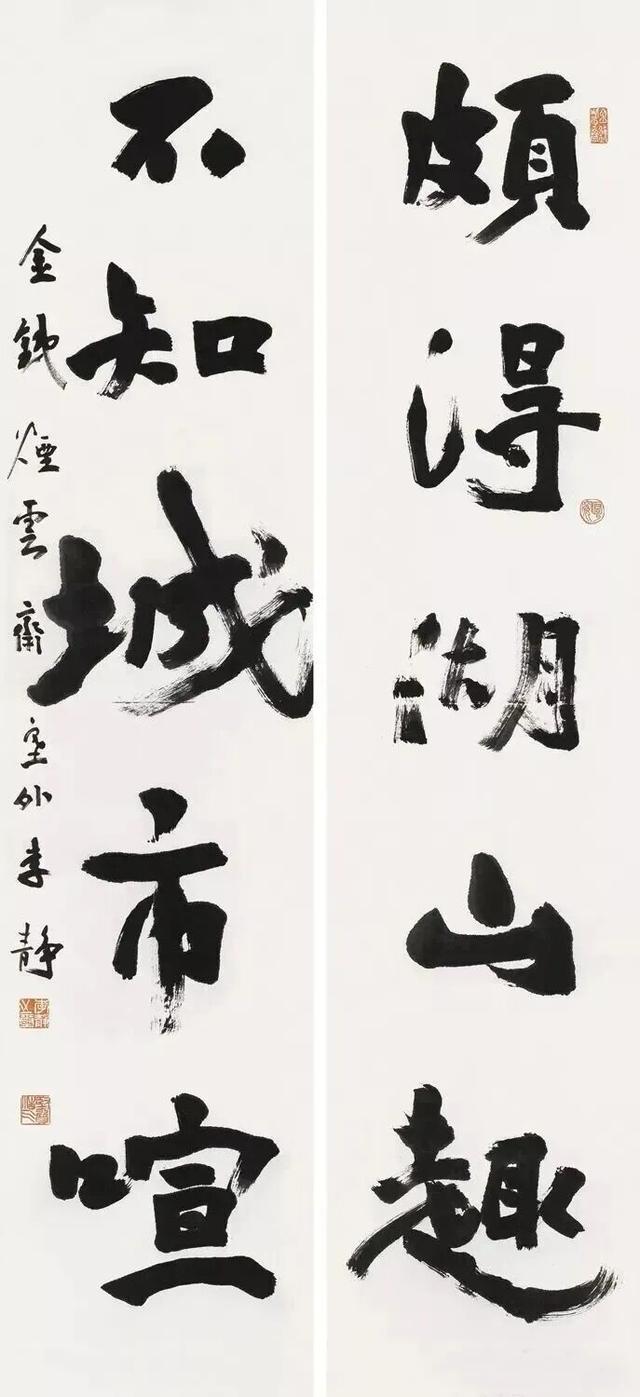 頗得湖山趣
不知城市喧
金錢煙雲齋窗外李靜